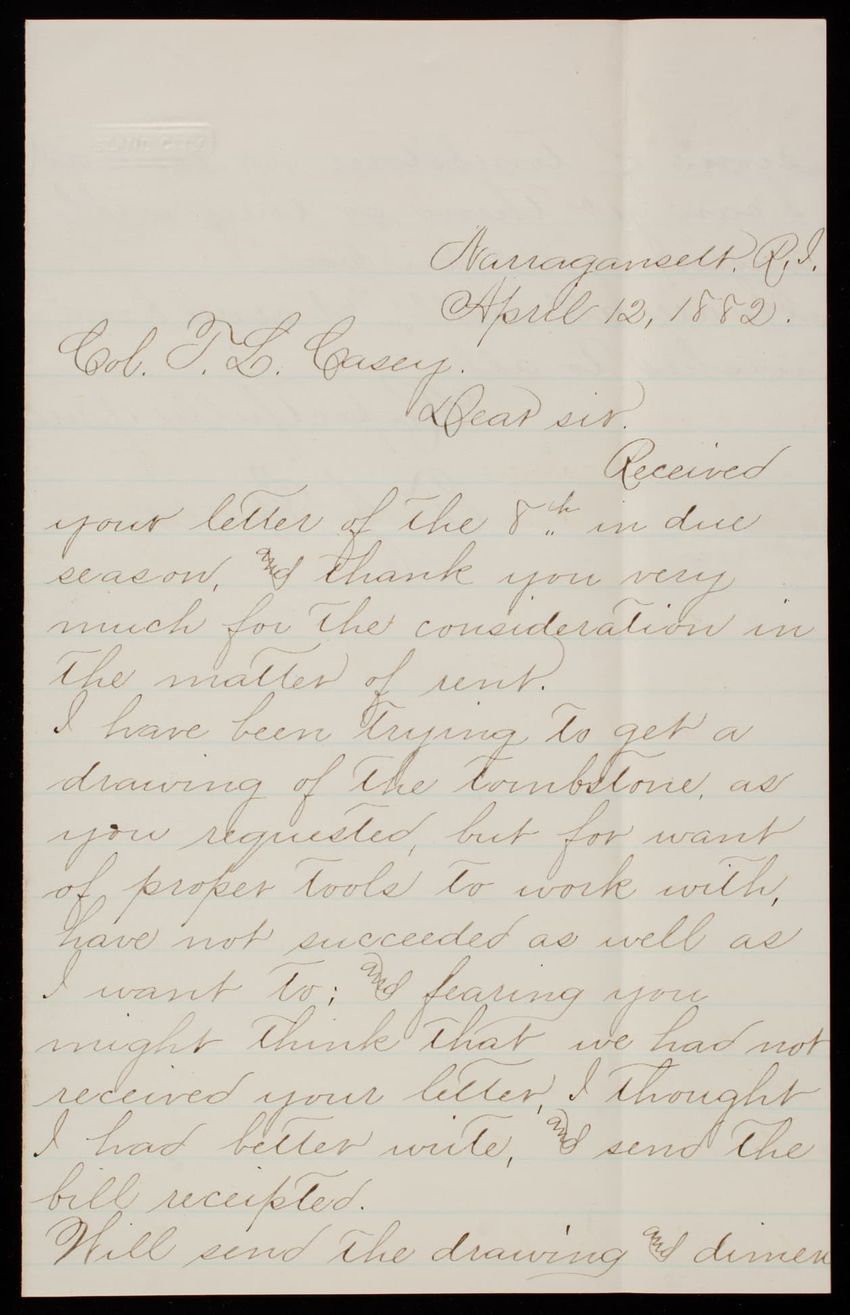 Narragansett, R.I.
April 12, 1882.
Col. T. L. Casey.
Dear sir.
Received
your letter of the 8th in due
season, and thank you very
much for the consideration in
the matter of rent.
I have been trying to get a
drawing of the tombstone, as
you requested, but for want
of proper tools to work with,
have not succeeded as well as
I want to; and fearing you
might think that we had not
received your letter, I thought
I had better write, and send the
bill receipted.
Will send the drawing and dimen